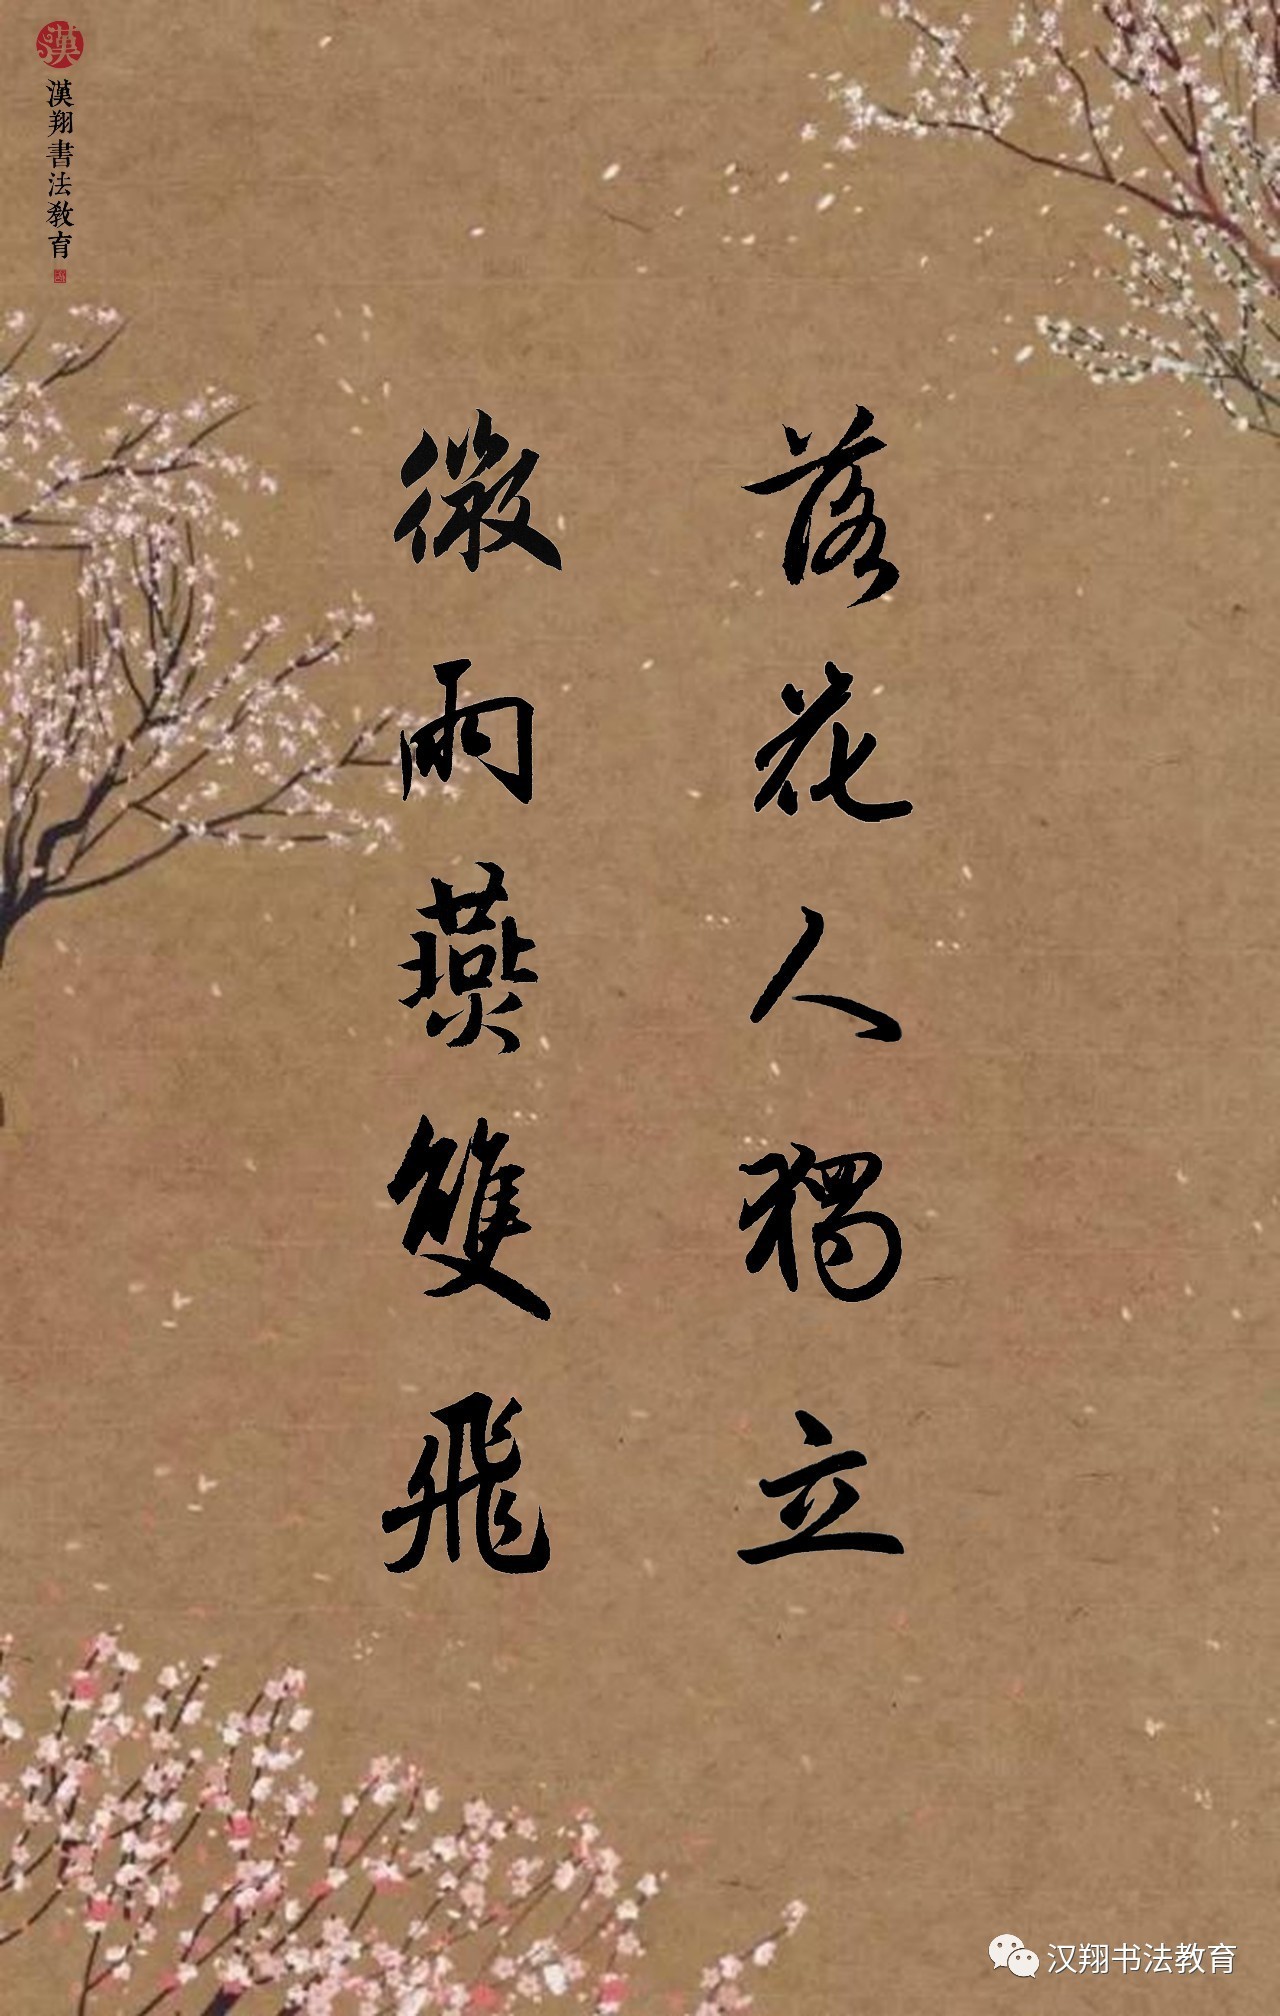 漢
漢翔書法教育
落花人獨立
微雨燕雙飛
汉翔书法教育